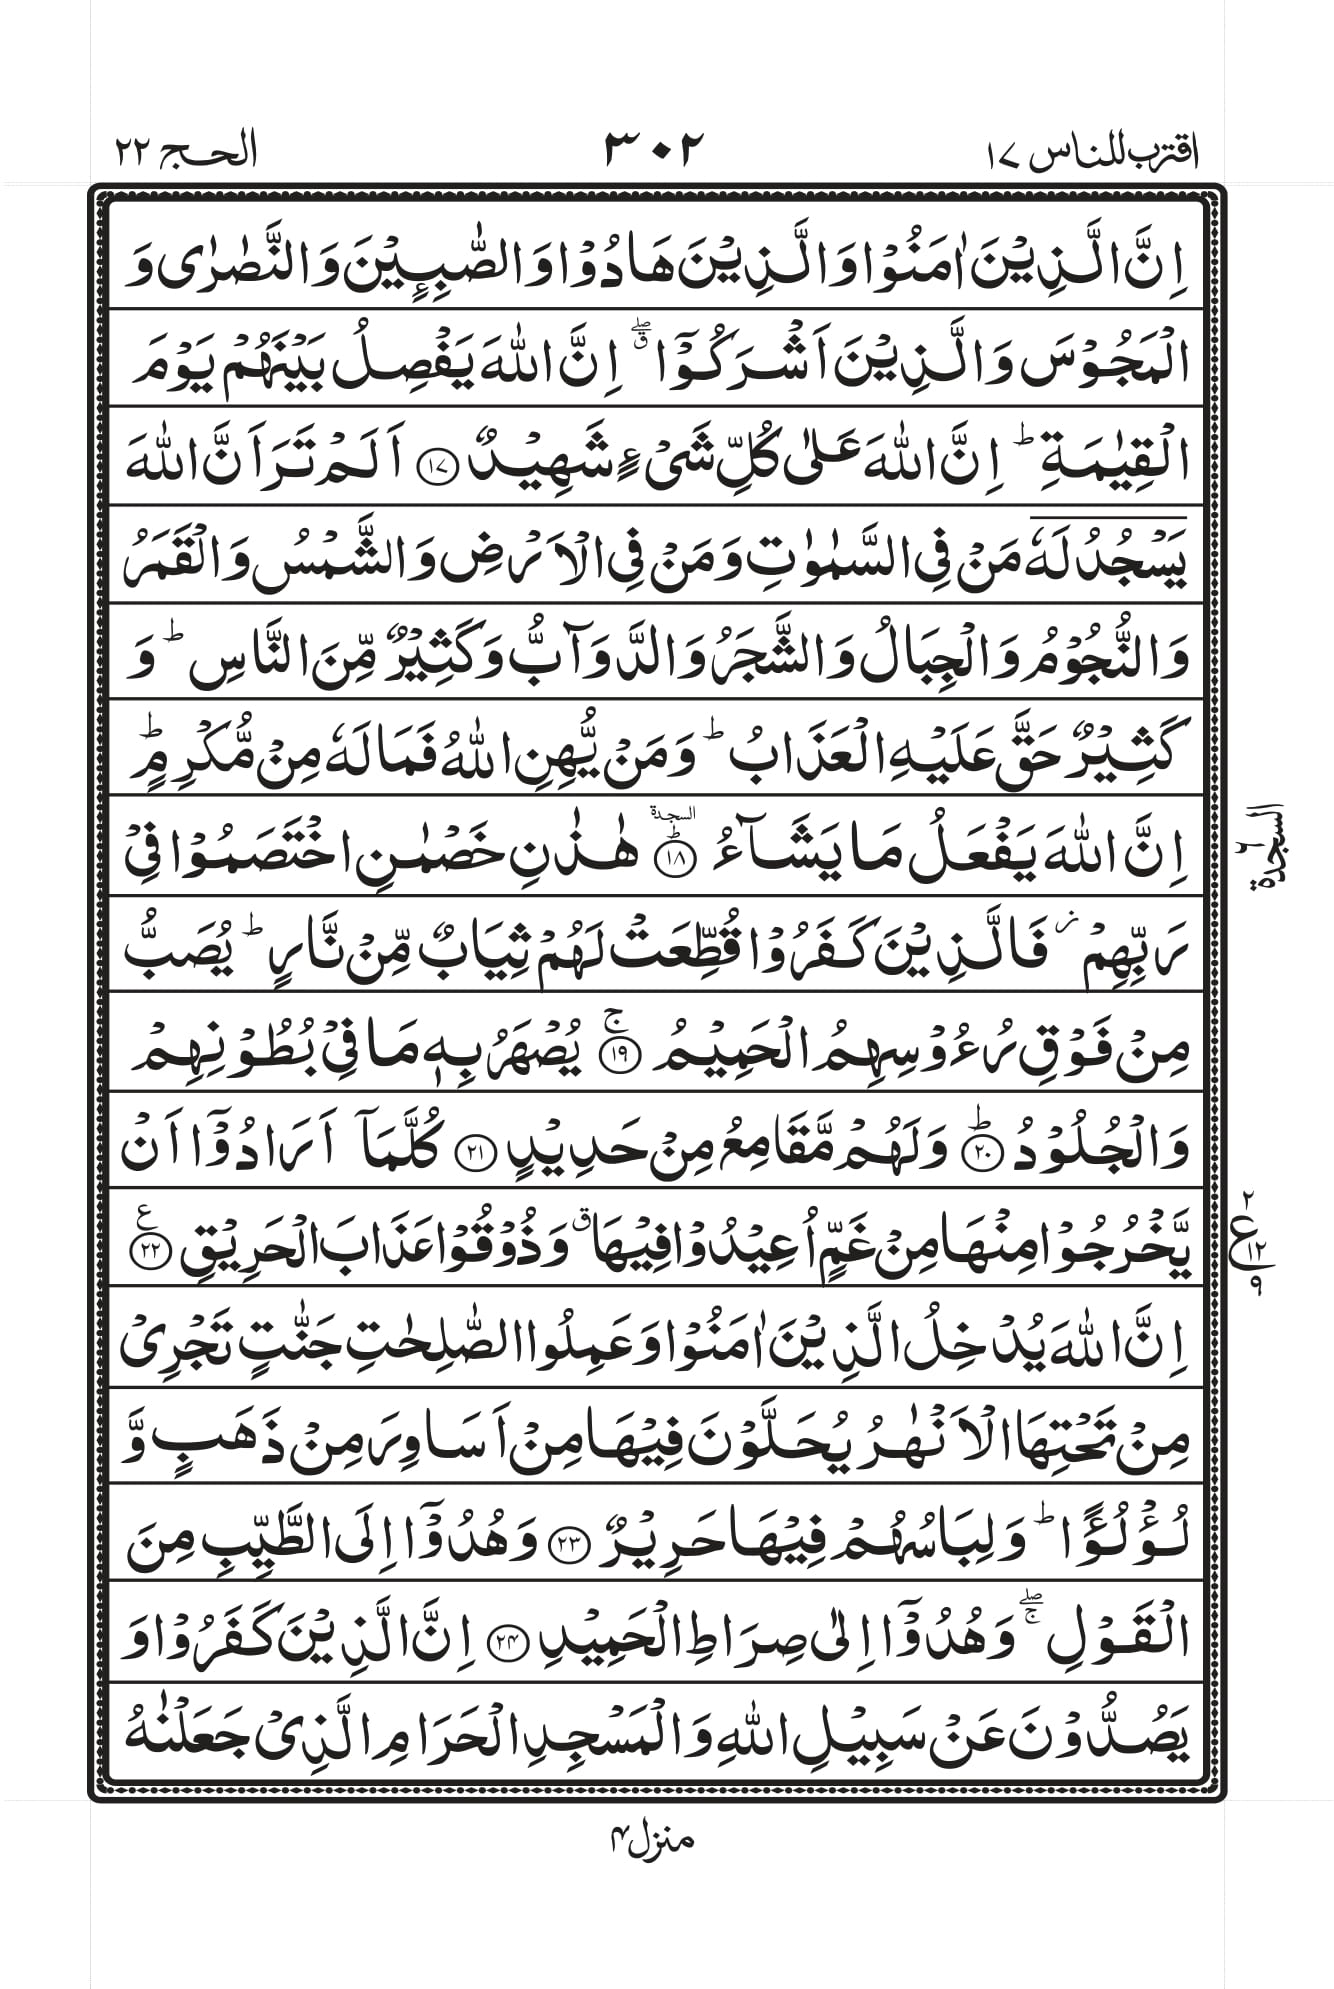 اقترب للناس ۱۷
۳۰۲
الحج ۲۲
اِنَّ الَّذِيْنَ اٰمَنُوْا وَالَّذِيْنَ هَادُوْا وَالصّٰبِـِٕيْنَ وَالنَّصٰرٰى وَ
الْمَجُوْسَ وَالَّذِيْنَ اَشْرَكُوْٓا ۖۗ اِنَّ اللّٰهَ يَفْصِلُ بَيْنَهُمْ يَوْمَ
الْقِيٰمَةِ ؕ اِنَّ اللّٰهَ عَلٰى كُلِّ شَىْءٍ شَهِيْدٌ ﴿۱۷﴾ اَلَمْ تَرَ اَنَّ اللّٰهَ
يَسْجُدُ لَهٗ مَنْ فِى السَّمٰوٰتِ وَمَنْ فِى الْاَرْضِ وَالشَّمْسُ وَالْقَمَرُ
وَالنُّجُوْمُ وَالْجِبَالُ وَالشَّجَرُ وَالدَّوَآبُّ وَكَثِيْرٌ مِّنَ النَّاسِ ؕ وَ
كَثِيْرٌ حَقَّ عَلَيْهِ الْعَذَابُ ؕ وَمَنْ يُّهِنِ اللّٰهُ فَمَا لَهٗ مِنْ مُّكْرِمٍ ؕ
اِنَّ اللّٰهَ يَفْعَلُ مَا يَشَآءُ ﴿۱۸﴾ؕ السجدة هٰذٰنِ خَصْمٰنِ اخْتَصَمُوْا فِىْ
السجدة ۶
رَبِّهِمْ ز فَالَّذِيْنَ كَفَرُوْا قُطِّعَتْ لَهُمْ ثِيَابٌ مِّنْ نَّارٍ ؕ يُصَبُّ
مِنْ فَوْقِ رُءُوْسِهِمُ الْحَمِيْمُ ﴿۱۹﴾ۚ يُصْهَرُ بِهٖ مَا فِىْ بُطُوْنِهِمْ
وَالْجُلُوْدُ ﴿۲۰﴾ؕ وَلَهُمْ مَّقَامِعُ مِنْ حَدِيْدٍ ﴿۲۱﴾ كُلَّمَآ اَرَادُوْٓا اَنْ
يَّخْرُجُوْا مِنْهَا مِنْ غَمٍّ اُعِيْدُوْا فِيْهَا ۗ وَذُوْقُوْا عَذَابَ الْحَرِيْقِ ﴿۲۲﴾ ع
۲ ع ۱۲ ۹
اِنَّ اللّٰهَ يُدْخِلُ الَّذِيْنَ اٰمَنُوْا وَعَمِلُوا الصّٰلِحٰتِ جَنّٰتٍ تَجْرِىْ
مِنْ تَحْتِهَا الْاَنْهٰرُ يُحَلَّوْنَ فِيْهَا مِنْ اَسَاوِرَ مِنْ ذَهَبٍ وَّ
لُؤْلُؤًا ؕ وَلِبَاسُهُمْ فِيْهَا حَرِيْرٌ ﴿۲۳﴾ وَهُدُوْٓا اِلَى الطَّيِّبِ مِنَ
الْقَوْلِ ۖۚ وَهُدُوْٓا اِلٰى صِرَاطِ الْحَمِيْدِ ﴿۲۴﴾ اِنَّ الَّذِيْنَ كَفَرُوْا وَ
يَصُدُّوْنَ عَنْ سَبِيْلِ اللّٰهِ وَالْمَسْجِدِ الْحَرَامِ الَّذِىْ جَعَلْنٰهُ
منزل ۴